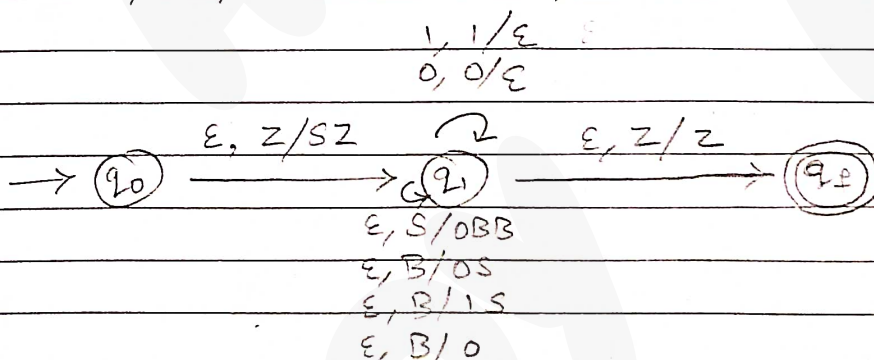 1, 1/ε
0, 0/ε
ε, Z/SZ ε, Z/Z
q0 q1 qf
ε, S/0BB
ε, B/0S
ε, B/1S
ε, B/0